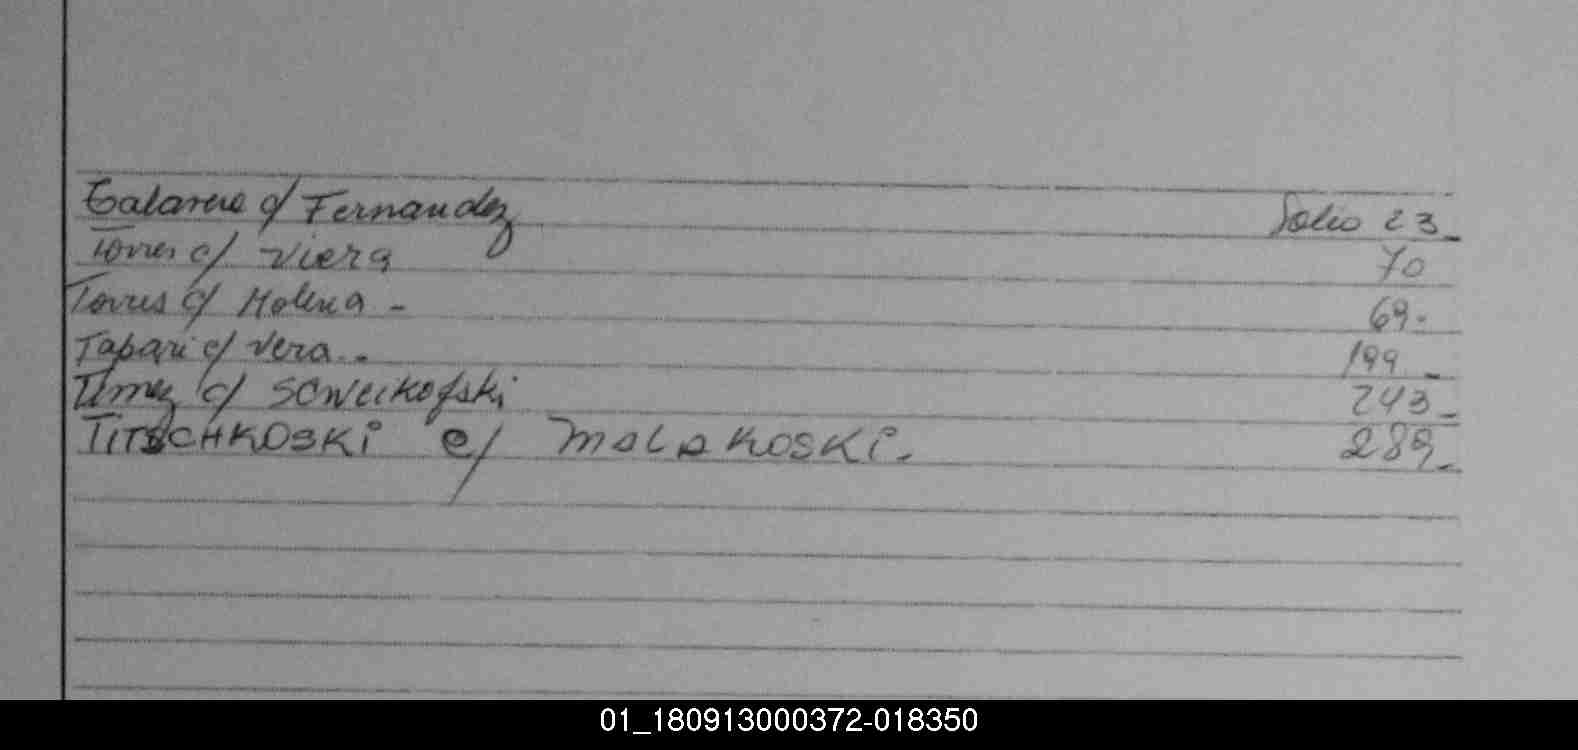 Talavera c/ Fernandez Folio 23_
Torres c/ Viera 70
Torres c/ Molina - 69.
Tapari c/ Vera. - 199_
c/ Scweikofski 243_
TITSCHKOSKi c/ MALAKOSKi. 289_
01_180913000372-018350